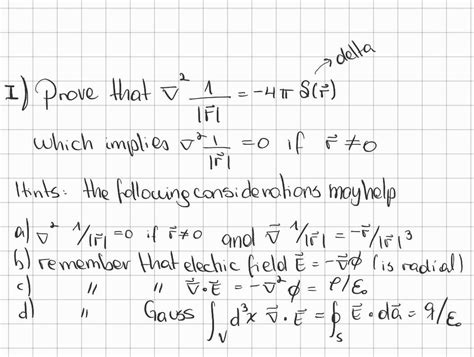 delta
I) Prove that ∇² 1/|r⃗| = -4π δ(r⃗)
which implies ∇² 1/|r⃗| = 0 if r⃗ ≠ 0
Hints: the following considerations may help
a) ∇² 1/|r⃗| = 0 if r⃗ ≠ 0 and ∇⃗ 1/|r⃗| = -r⃗/|r⃗|³
b) remember that electric field E⃗ = -∇⃗ϕ (is radial)
c) " " ∇⃗·E⃗ = -∇²ϕ = ρ/ε₀
d) " Gauss ∫_V d³x ∇⃗·E⃗ = ∮_S E⃗·da⃗ = q/ε₀